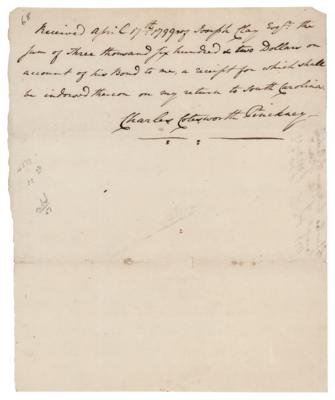 68
Received April 17th. 1799 of Joseph Clay Esqr. the
sum of Three thousand six hundred & two Dollars on
account of his Bond to me, a receipt for which shall
be indorsed thereon on my return to South Carolina
Charles Cotesworth Pinckney